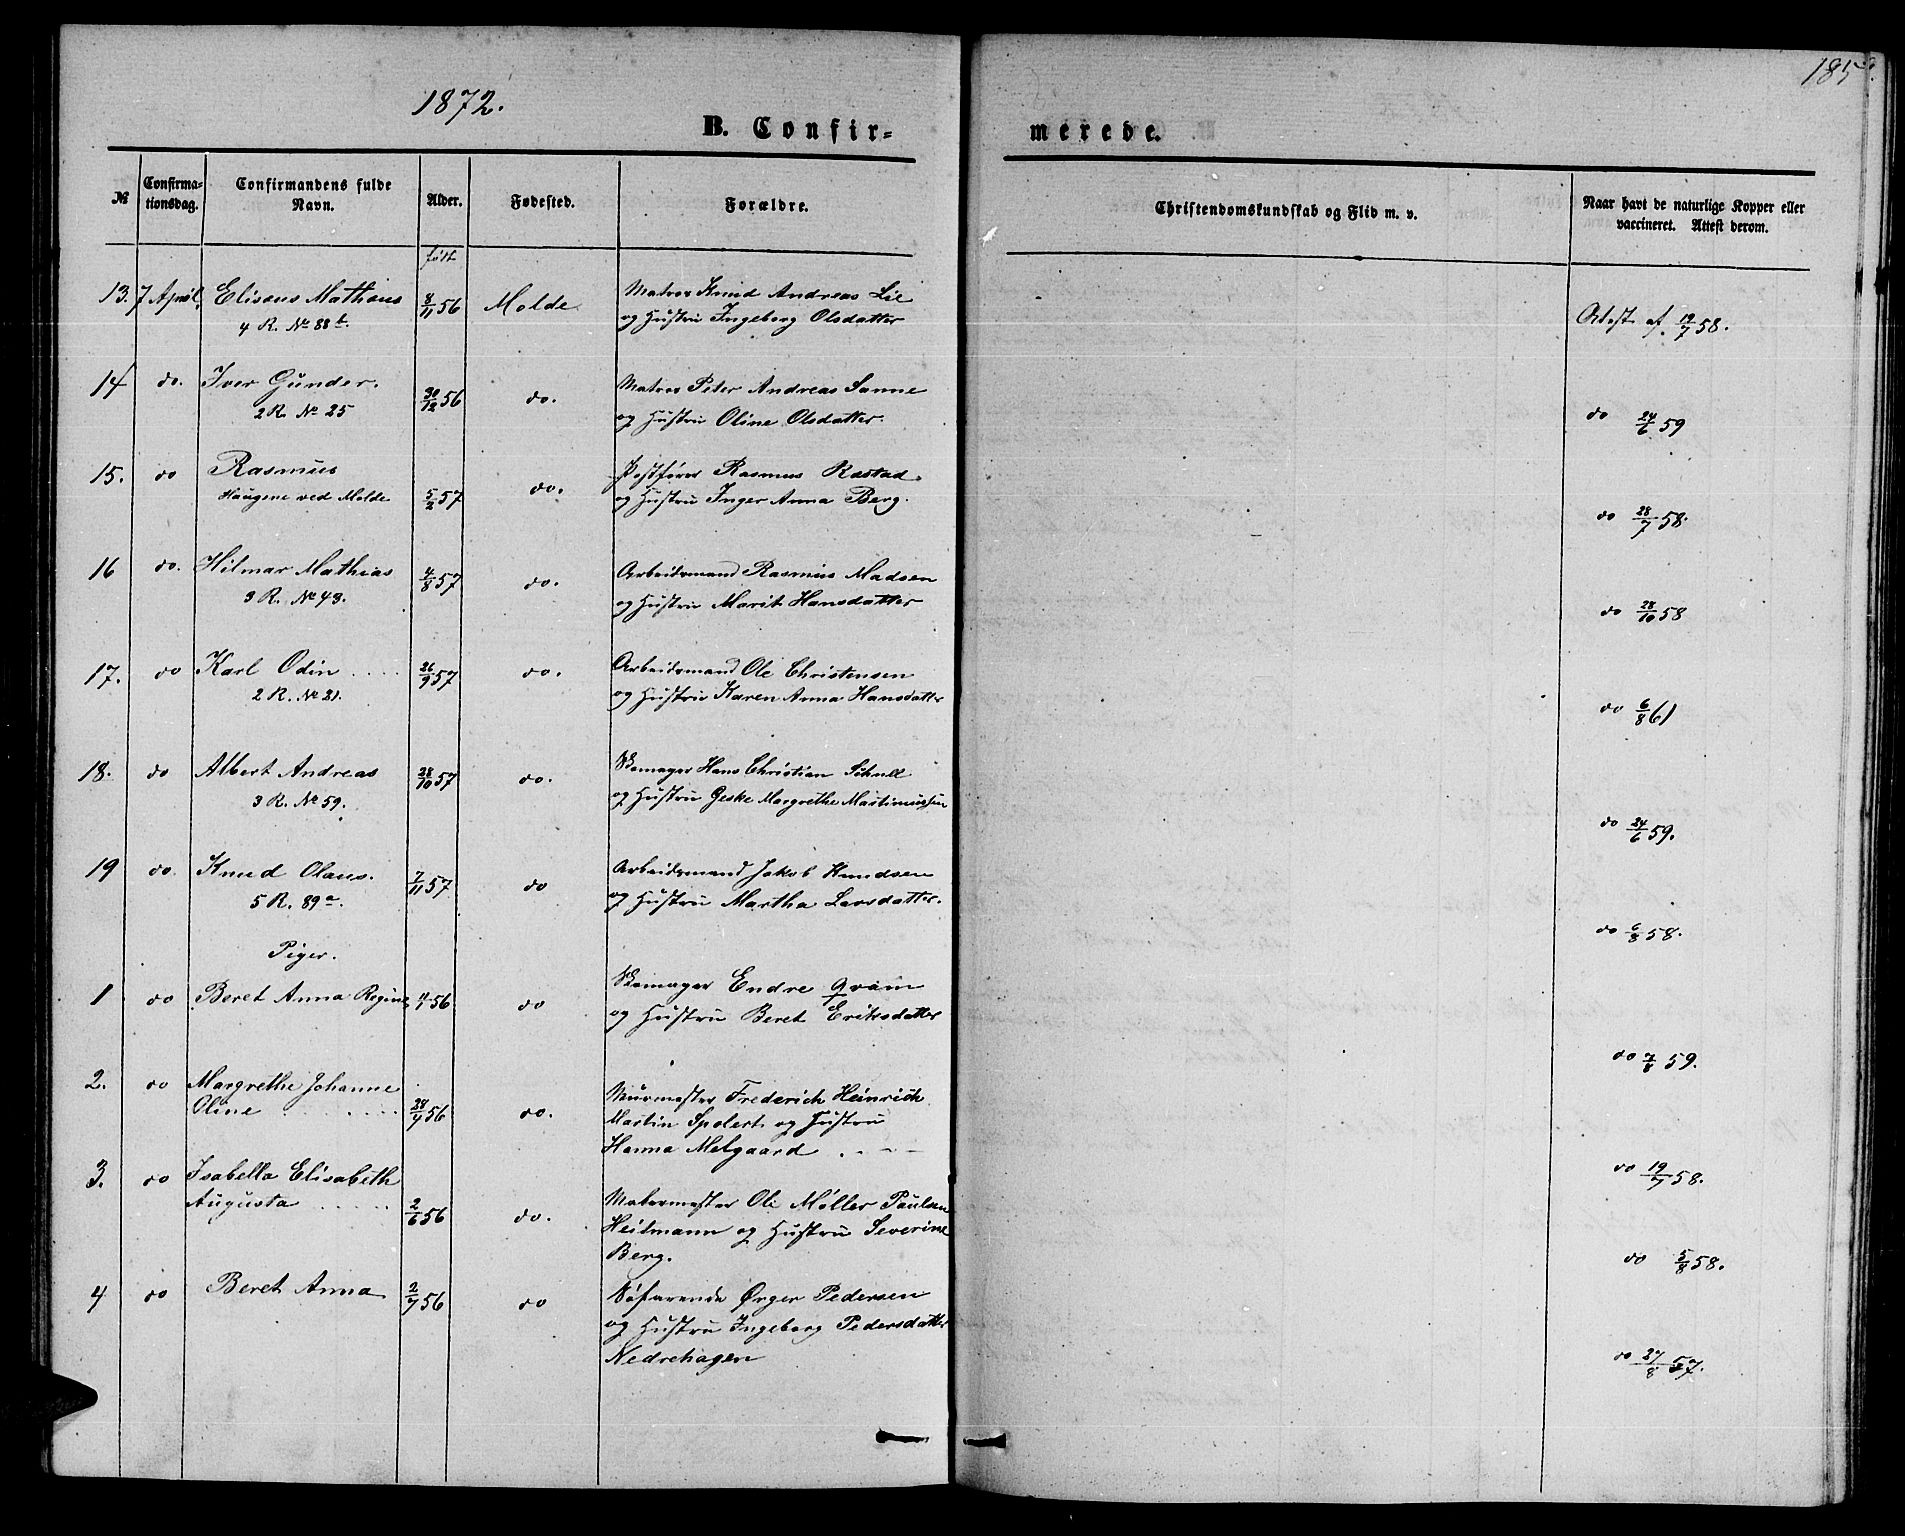 1872.
185
B. Confir-
merede.
№
Confirma-
tionsdag.
Confirmandens fulde
Navn.
Alder.
Fødested.
Forældre.
Christendomskundskab og Flid m. v.
Naar havt de naturlige Kopper eller
vaccineret. Attest derom.
født
13. 7 April. Eliseus Matheus 8/11 56 Molde Matros Knud Andreas Lie
4 R. No 88 b. og Hustru Ingeborg Olsdatter
Attest af 19/7 58.
14 do. Iver Gunder. 30/12 56 do. Matros Peter Andreas Sanne
2 R. No 25 og Hustru Oline Olsdatter.
do 24/6 59
15. do Rasmus 5/2 57 do. Postfører Rasmus Rastad
Haugene ved Molde og Hustru Inger Anna Berg.
do 28/7 58.
16 do. Hilmar Mathias 4/8 57 do. Arbeidsmand Rasmus Madsen
3 R. No 43. og Hustru Marit Hansdatter
do 28/10 58
17. do Karl Odin 26/9 57 do. Arbeidsmand Ole Christensen
2 R. No 21. og Hustru Karen Anna Hansdatter
do 6/8 61
18. do Albert Andreas 28/10 57 do. Skomager Hans Christian Schnell
3 R. No 59. og Hustru Geske Margrethe Martinussen
do 24/6 59.
19 do. Knud Olaus. 7/11 57 do Arbeidsmand Jakob Knudsen
5 R. 89 a. og Hustru Martha Larsdatter.
do 6/8 58.
Piger.
1 do Beret Anna Regine 4/1 56 do Skomager Endre Gröm
og Hustru Beret Eriksdatter
do 7/8 59.
2. do Margrethe Johanne
Oline 28/4 56 do. Murmester Frederich Heinrich
Martin Spolert og Hustru
Hanna Melgaard
do 19/7 58.
3. do Isabella Elisabeth
Augusta 2/6 56 do. Malermester Ole Møller Paulsen
Heilmann og Hustru Severine
Berg.
do 5/8 58.
4 do Beret Anna 2/7 56 do Søfarende Ørger Pedersen
og Hustru Ingeborg Pedersdatter
Nedrehagen
do 27/8 57.